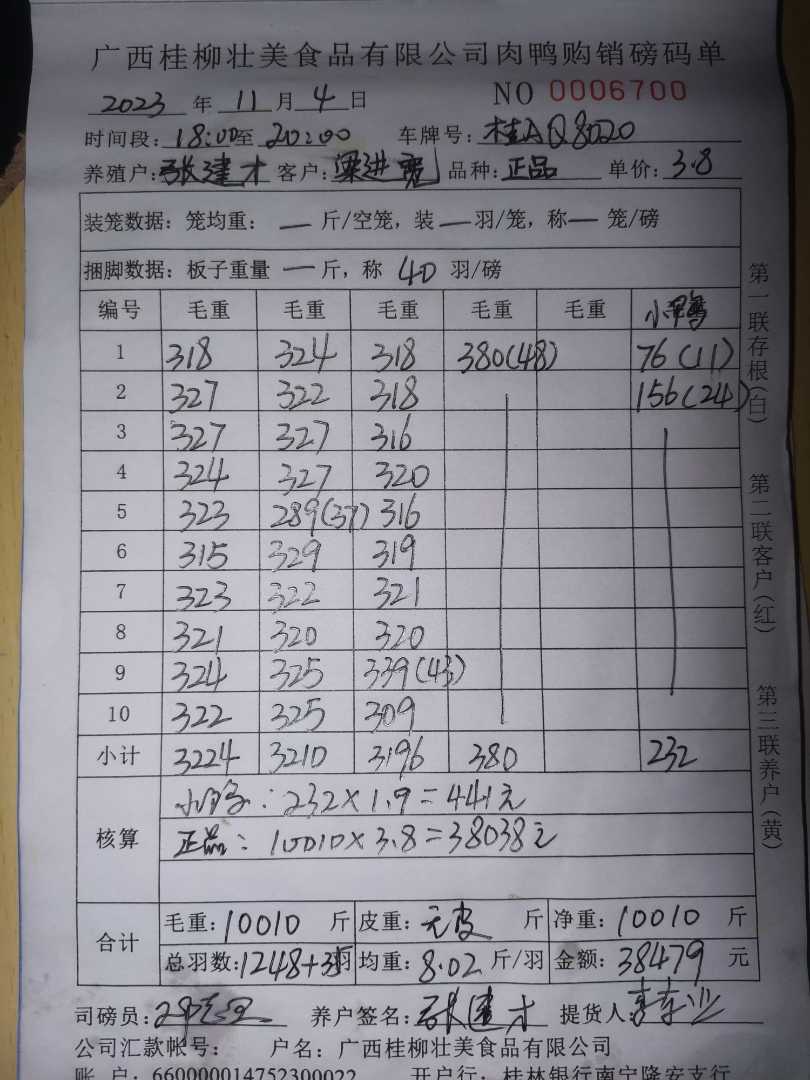 广西桂柳壮美食品有限公司肉鸭购销磅码单
2023 年 11 月 4 日 NO 0006700
时间段: 18:00至 20:00 车牌号: 桂AQ8020
养殖户: 张建才 客户: 梁进宽 品种: 正品 单价: 3.8
装笼数据: 笼均重: — 斤/空笼, 装 — 羽/笼, 称 — 笼/磅
捆脚数据: 板子重量 — 斤, 称 40 羽/磅
编号 毛重 毛重 毛重 毛重 毛重 小鸭
1 318 324 318 380(48) 76(11)
2 327 322 318 156(24)
3 327 327 316
4 324 327 320
5 323 289(37) 316
6 315 329 319
7 323 322 321
8 321 320 320
9 324 325 339(43)
10 322 325 309
小计 3224 3210 3196 380 232
核算 小鸭: 232×1.9=441元
正品: 10010×3.8=38038元
合计 毛重: 10010 斤 皮重: 无皮 斤 净重: 10010 斤
总羽数: 1248+35羽 均重: 8.02 斤/羽 金额: 38479 元
司磅员: 养户签名: 张建才 提货人
公司汇款帐号: 户名: 广西桂柳壮美食品有限公司
账 户: 660000014752300022 开户行: 桂林银行南宁隆安支行
第一联存根(白)
第二联客户(红)
第三联养户(黄)